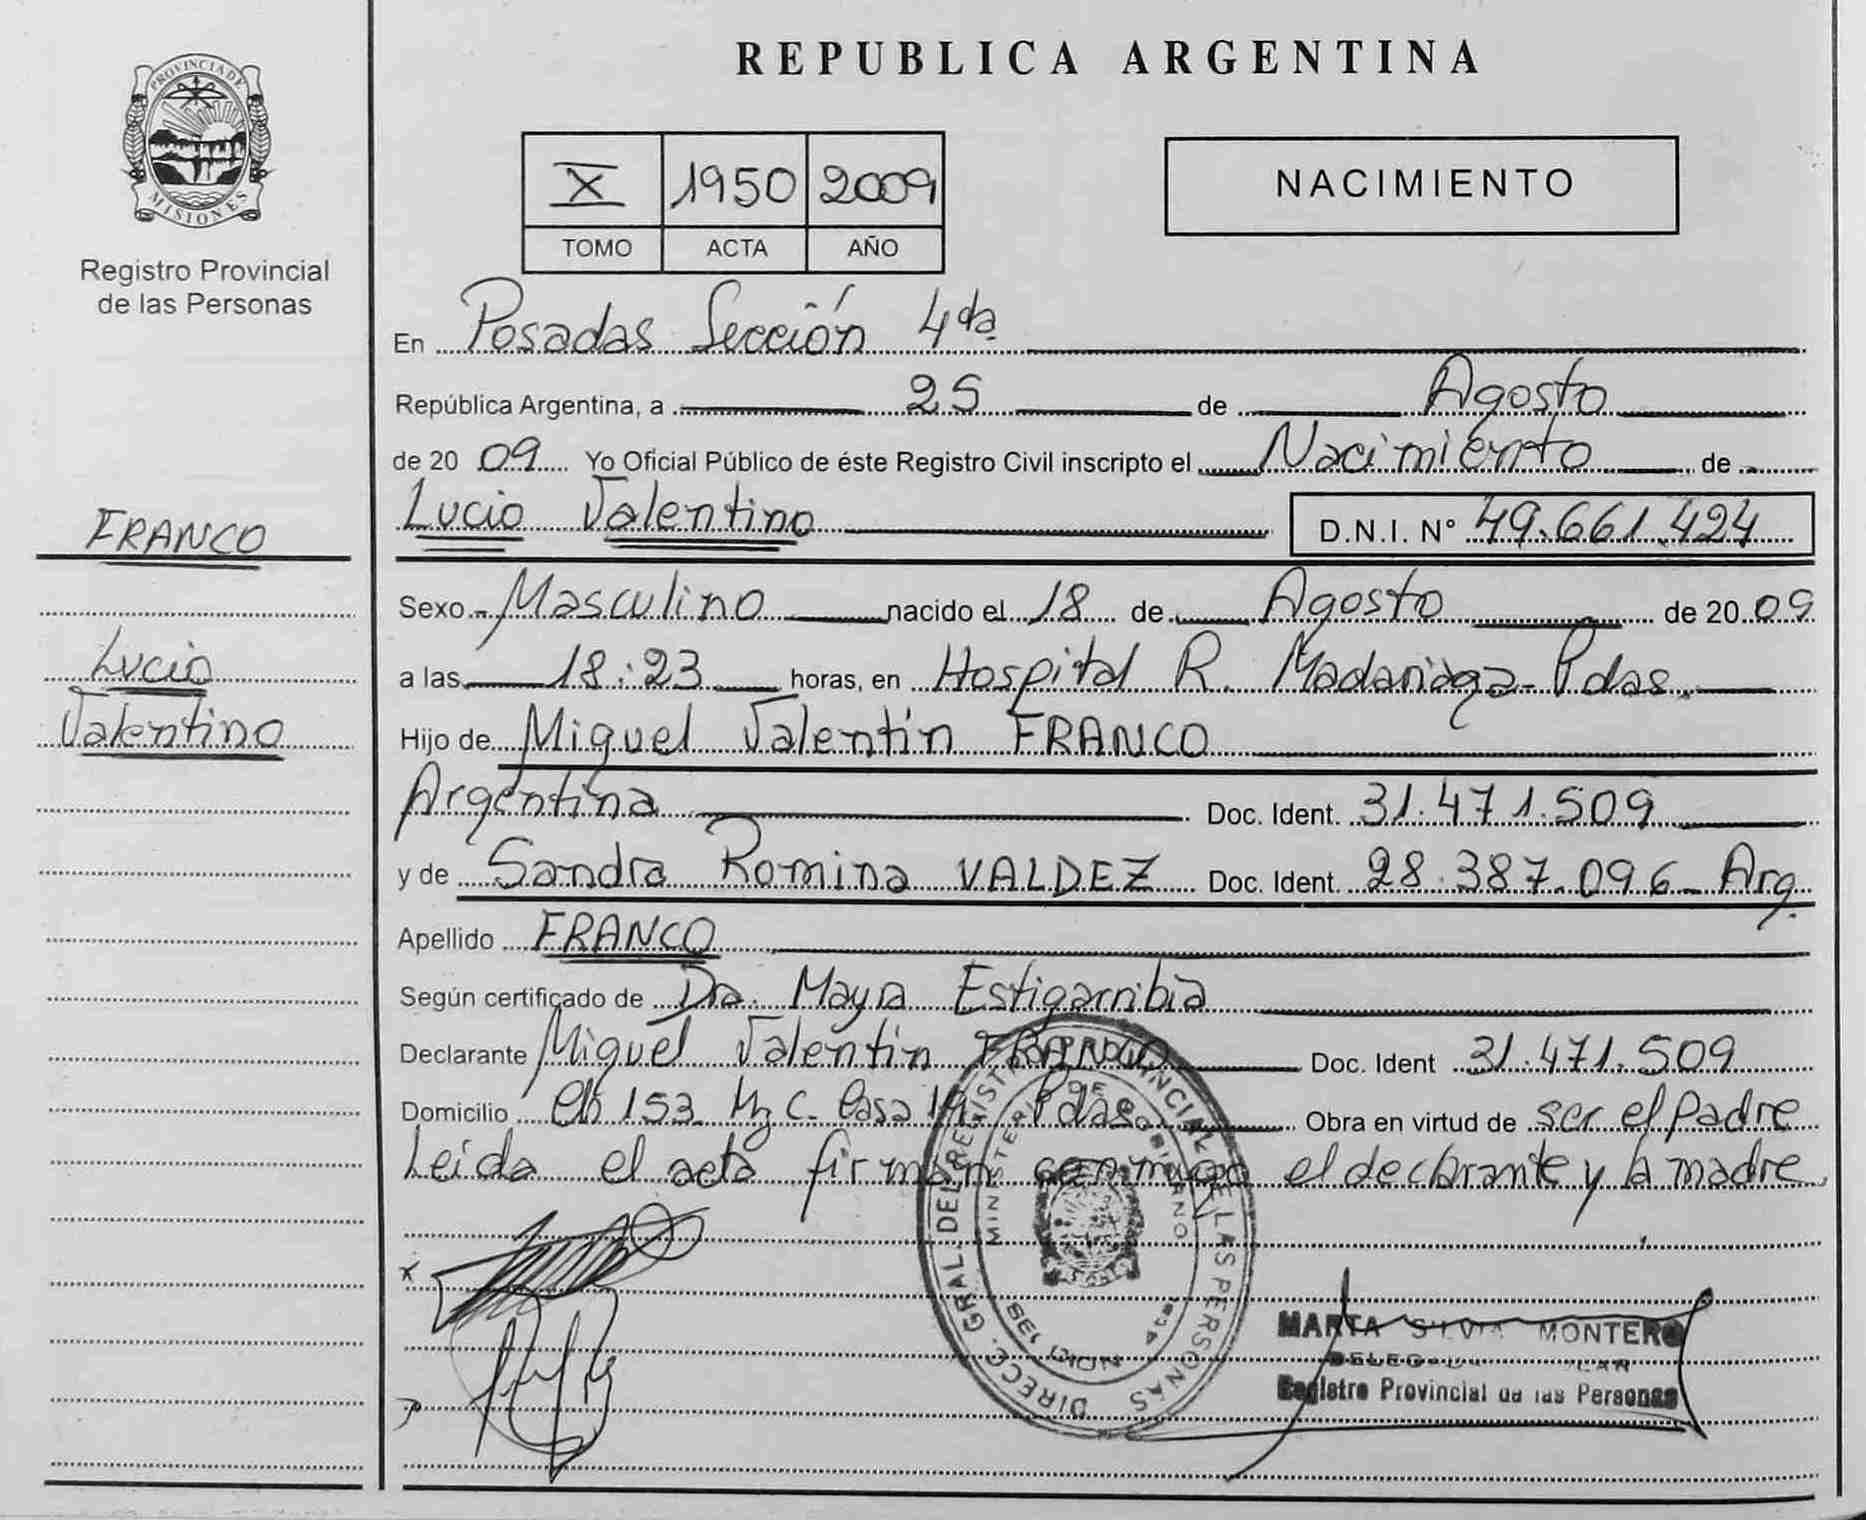 PROVINCIA DE
MISIONES
Registro Provincial
de las Personas
FRANCO
Lucio
Valentino
REPUBLICA ARGENTINA
X 1950 2009
TOMO ACTA AÑO
NACIMIENTO
En Posadas Sección 4da
República Argentina, a 25 de Agosto
de 20 09 Yo Oficial Público de éste Registro Civil inscripto el Nacimiento de
Lucio Valentino D.N.I. Nº 49.661.424
Sexo Masculino nacido el 18 de Agosto de 20 09
a las 18:23 horas, en Hospital R. Madariaga-Pdas.
Hijo de Miguel Valentín FRANCO
Argentina Doc. Ident. 31.471.509
y de Sandra Romina VALDEZ Doc. Ident. 28.387.096- Arg.
Apellido FRANCO
Según certificado de Dra. Mayra Estigarribia
Declarante Miguel Valentín FRANCO Doc. Ident 31.471.509
Domicilio Ch 153 Mz C. Casa 19 Pdas. Obra en virtud de ser el Padre
Leída el acta firman conmigo el declarante y la madre.
DIRECC. GRAL. DEL REGISTRO PROVINCIAL DE LAS PERSONAS
MINISTERIO DE GOBIERNO
SECCION 4ta
MARTA SILVIA MONTERO
Registro Provincial de las Personas